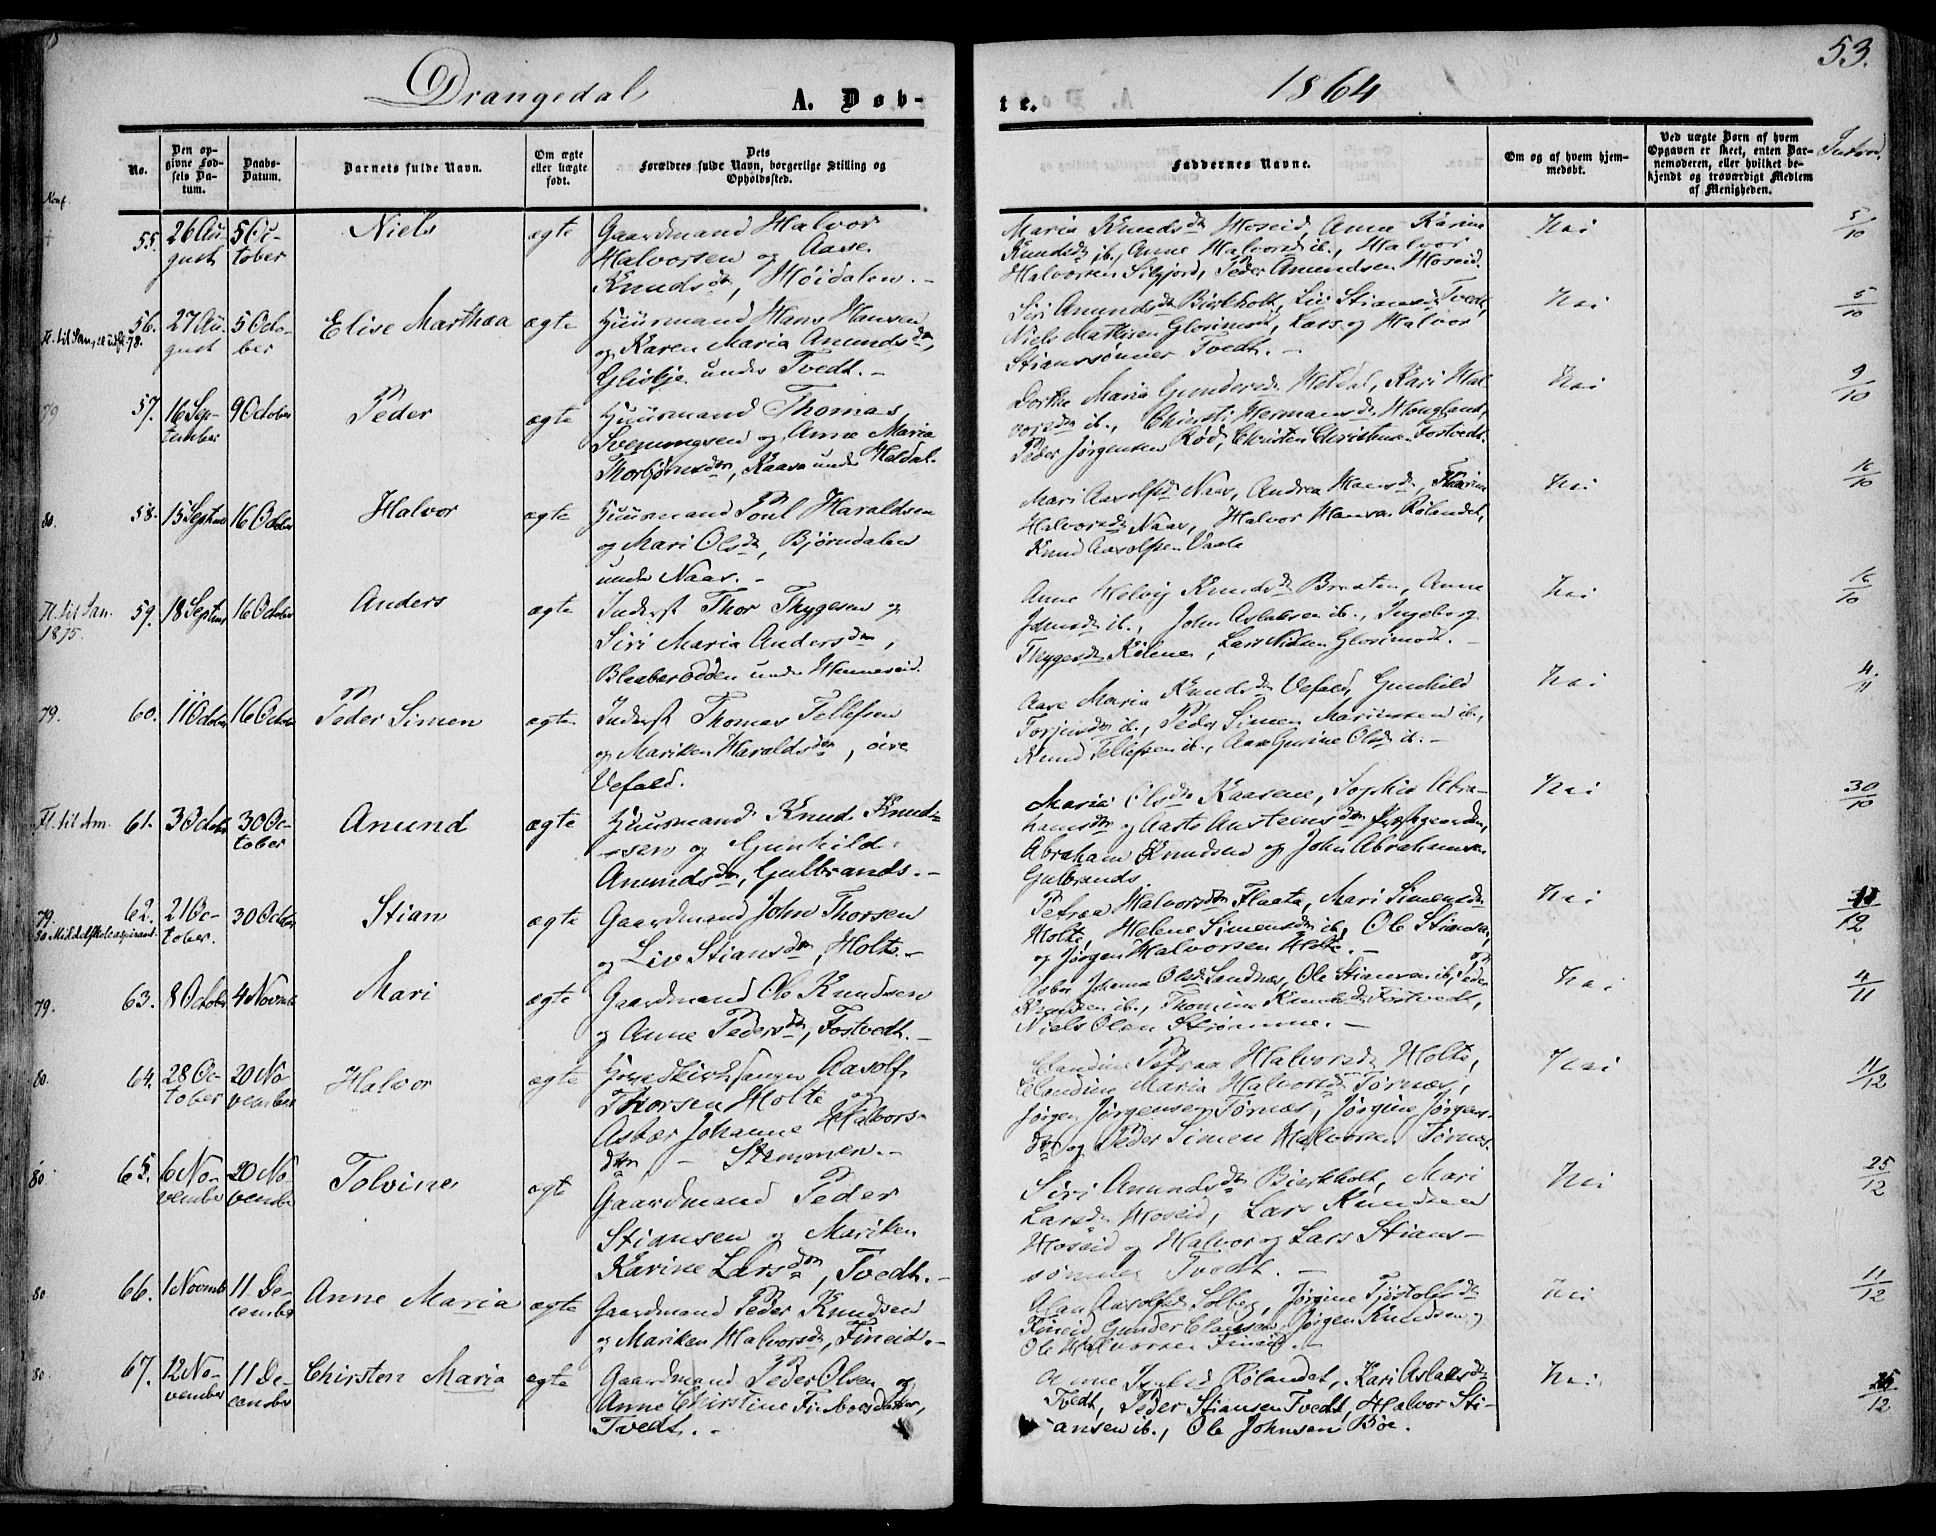 Drangedal
A. Døb-
te.
1864
53.
No.
Den op-
givne Fød-
sels Da-
tum.
Daabs-
Datum.
Barnets fulde Navn.
Om ægte
eller uægte
født.
Dets
Forældres fulde Navn, borgerlige Stilling og
Opholdssted.
Faddernes Navne.
Om og af hvem hjem-
medøbt.
Ved uægte Børn af hvem
Opgaven er skeet, enten Bar-
nemoderen, eller hvilket be-
kjendt og troværdigt Medlem
af Menigheden.
Konf.
55. 26 Au-
gust
5 Oc-
tober
Niels
ægte
Gaardmand Halvor
Halvorsen og Aase
Knudsdr, Høidalen.-
Maria Knudsdr Hoseid, Anne Karine
Knudsdr ib., Anne Halvorsd ib., Halvor
Halvorsen Silgjord, Peder Amundsen Hoseid.
Nei
5/10
Fl. til San,
78.
56. 27 Au-
gust
5 Octo-
ber
Elise Marthea
ægte
Huusmand Hans Hansen
og Karen Maria Anundsdr,
under Tvedt.-
Siri Amundsdr Bierkholt, Liv Stiansdr Tvedt,
Niels Mathisen Glosimodt, Lars og Halvor
Stianssønner Tvedt.-
Nei
5/10
79
57. 16 Sep-
tember
9 October
Peder
ægte
Huusmand Thomas
Svenungsen og Anne Maria
Thorbjørnsdr, Kaasa under Heldal.
Dorthe Maria Gundersdr Heldal, Kari Hal-
vorsdr ib., Christi Hermansdr Hougland,
Peder Jørgensen Rød, Christen Christensen Fostvedt.
Nei
9/10
80.
58. 15 Septmbr
16 October
Halvor
ægte
Huusmand Poul Haraldsen
og Mari Olsdr, Bjørndalen
under Naas.-
Mari Aasolfsdr Naas, Andrea Hansdr,
Halvorsdr Naas, Halvor Hansen Rølandet,
Knud Aasolfsen Vaale
Nei
16/10
Fl. til San.
1875.
59. 18 Septmbr
16 October
Anders
ægte
Inderst Thor Thygesen og
Siri Maria Andersdr,
Blaabærodden under Henneseid.
Anne Helvig Knudsdr Braaten, Anne
Jensdr ib., John Aslaksen ib., Ingeborg
Thygesdr Kølene, Lars Nilsen Glosimodt.-
Nei
16/10
79.
60. 11 October
16 October
Peder Simen
ægte
Inderst Thomas Tellefsen
og Mariken Haraldsdr, øvre
Vefald.
Aase Maria Knudsdr Vefald, Gunhild
Torjusdr ib., Peder Simen Mariussen ib.,
Knud Tellefsen ib., Aase Gurine Olsdr ib.-
Nei
4/11
Fl. til Am.
61. 3 October
30 Oc-
tober
Anund
ægte
Huusmand Knud Knud-
sen og Gunhild
Anundsdr, Gulbrands.-
Maria Olsdr Kaasene, Sophie Abra-
hamsdr og Aaste Austeensdr
Abraham Knudsen og John Abrahamsen
Gulbrands
Nei
30/10
79.
80 Middelskoleaspirant.
62. 21 Oc-
tober.
30 October
Stian
ægte
Gaardmand John Thorsen
og Liv Stiansdr, Holte.-
Petrea Halvorsdr Flaata, Mari Simensdr
Holte, Helene Simensdr ib., Ole Stiansen,
og Jørgen Halvorsen Holte.-
Nei
11/12
79.
63. 8 October
4 Novmb
Mari
ægte
Gaardmand Ole Knudsen
og Anne Pedersdr, Fostvedt.-
Asber Johanne Olsdr Sandnæs, Ole Stiansen ib., Peder
Knudsen ib., Thomine Knudsdr Fostvedt,
Niels Olsen Strømme.-
Nei
4/11
80.
64. 28 Oc-
tober
20 No-
vember
Halvor
ægte
Hovedkirkesanger Aasolf
Thorsen Holte og
Asber Johanne Halvors-
dr - Stemmen.-
Claudine Petrea Halvorsdr Holte,
Claudine Maria Halvorsdr Tørnæs,
Jørgen Jørgensen Tørnæs, Jørgine Jørgens-
dr og Peder Simen Halvorsen Tørnæs.
Nei
11/12
80
65. 6 No-
vember
20 No-
vember
Tolvine
ægte
Gaardmand Peder
Stiansen og Mariken
Karine Larsdr, Tvedt.-
Siri Amundsdr Bierkholt, Mari
Larsdr Hoseid, Lars Knudsen
Hoseid og Halvor og Lars Stians-
sønner Tvedt.-
Nei
25/12
80
66. 1 Novmb
11 De-
cember
Anne Maria
ægte
Gaardmand Peder Knudsen
og Mariken Halvorsdr, Fineid.-
Aasolfsdr Solberg, Jørgine Tjøstolsdr
Fineid, Gunder Clausen, Jørgen Knudsen og
Ole Halvorsen Fineid.-
Nei
11/12
80
67. 12 No-
vember
11 De-
cember
Chirsten Maria
ægte
Gaardmand Peder Olsen og
Anne Chirstine
Tvedt.-
Anne Rølandet, Kari Aslaksdr
Tvedt, Peder Stiansen Tvedt, Halvor Sti-
ansen ib., Ole Johnsen Bøe.
Nei
25/12